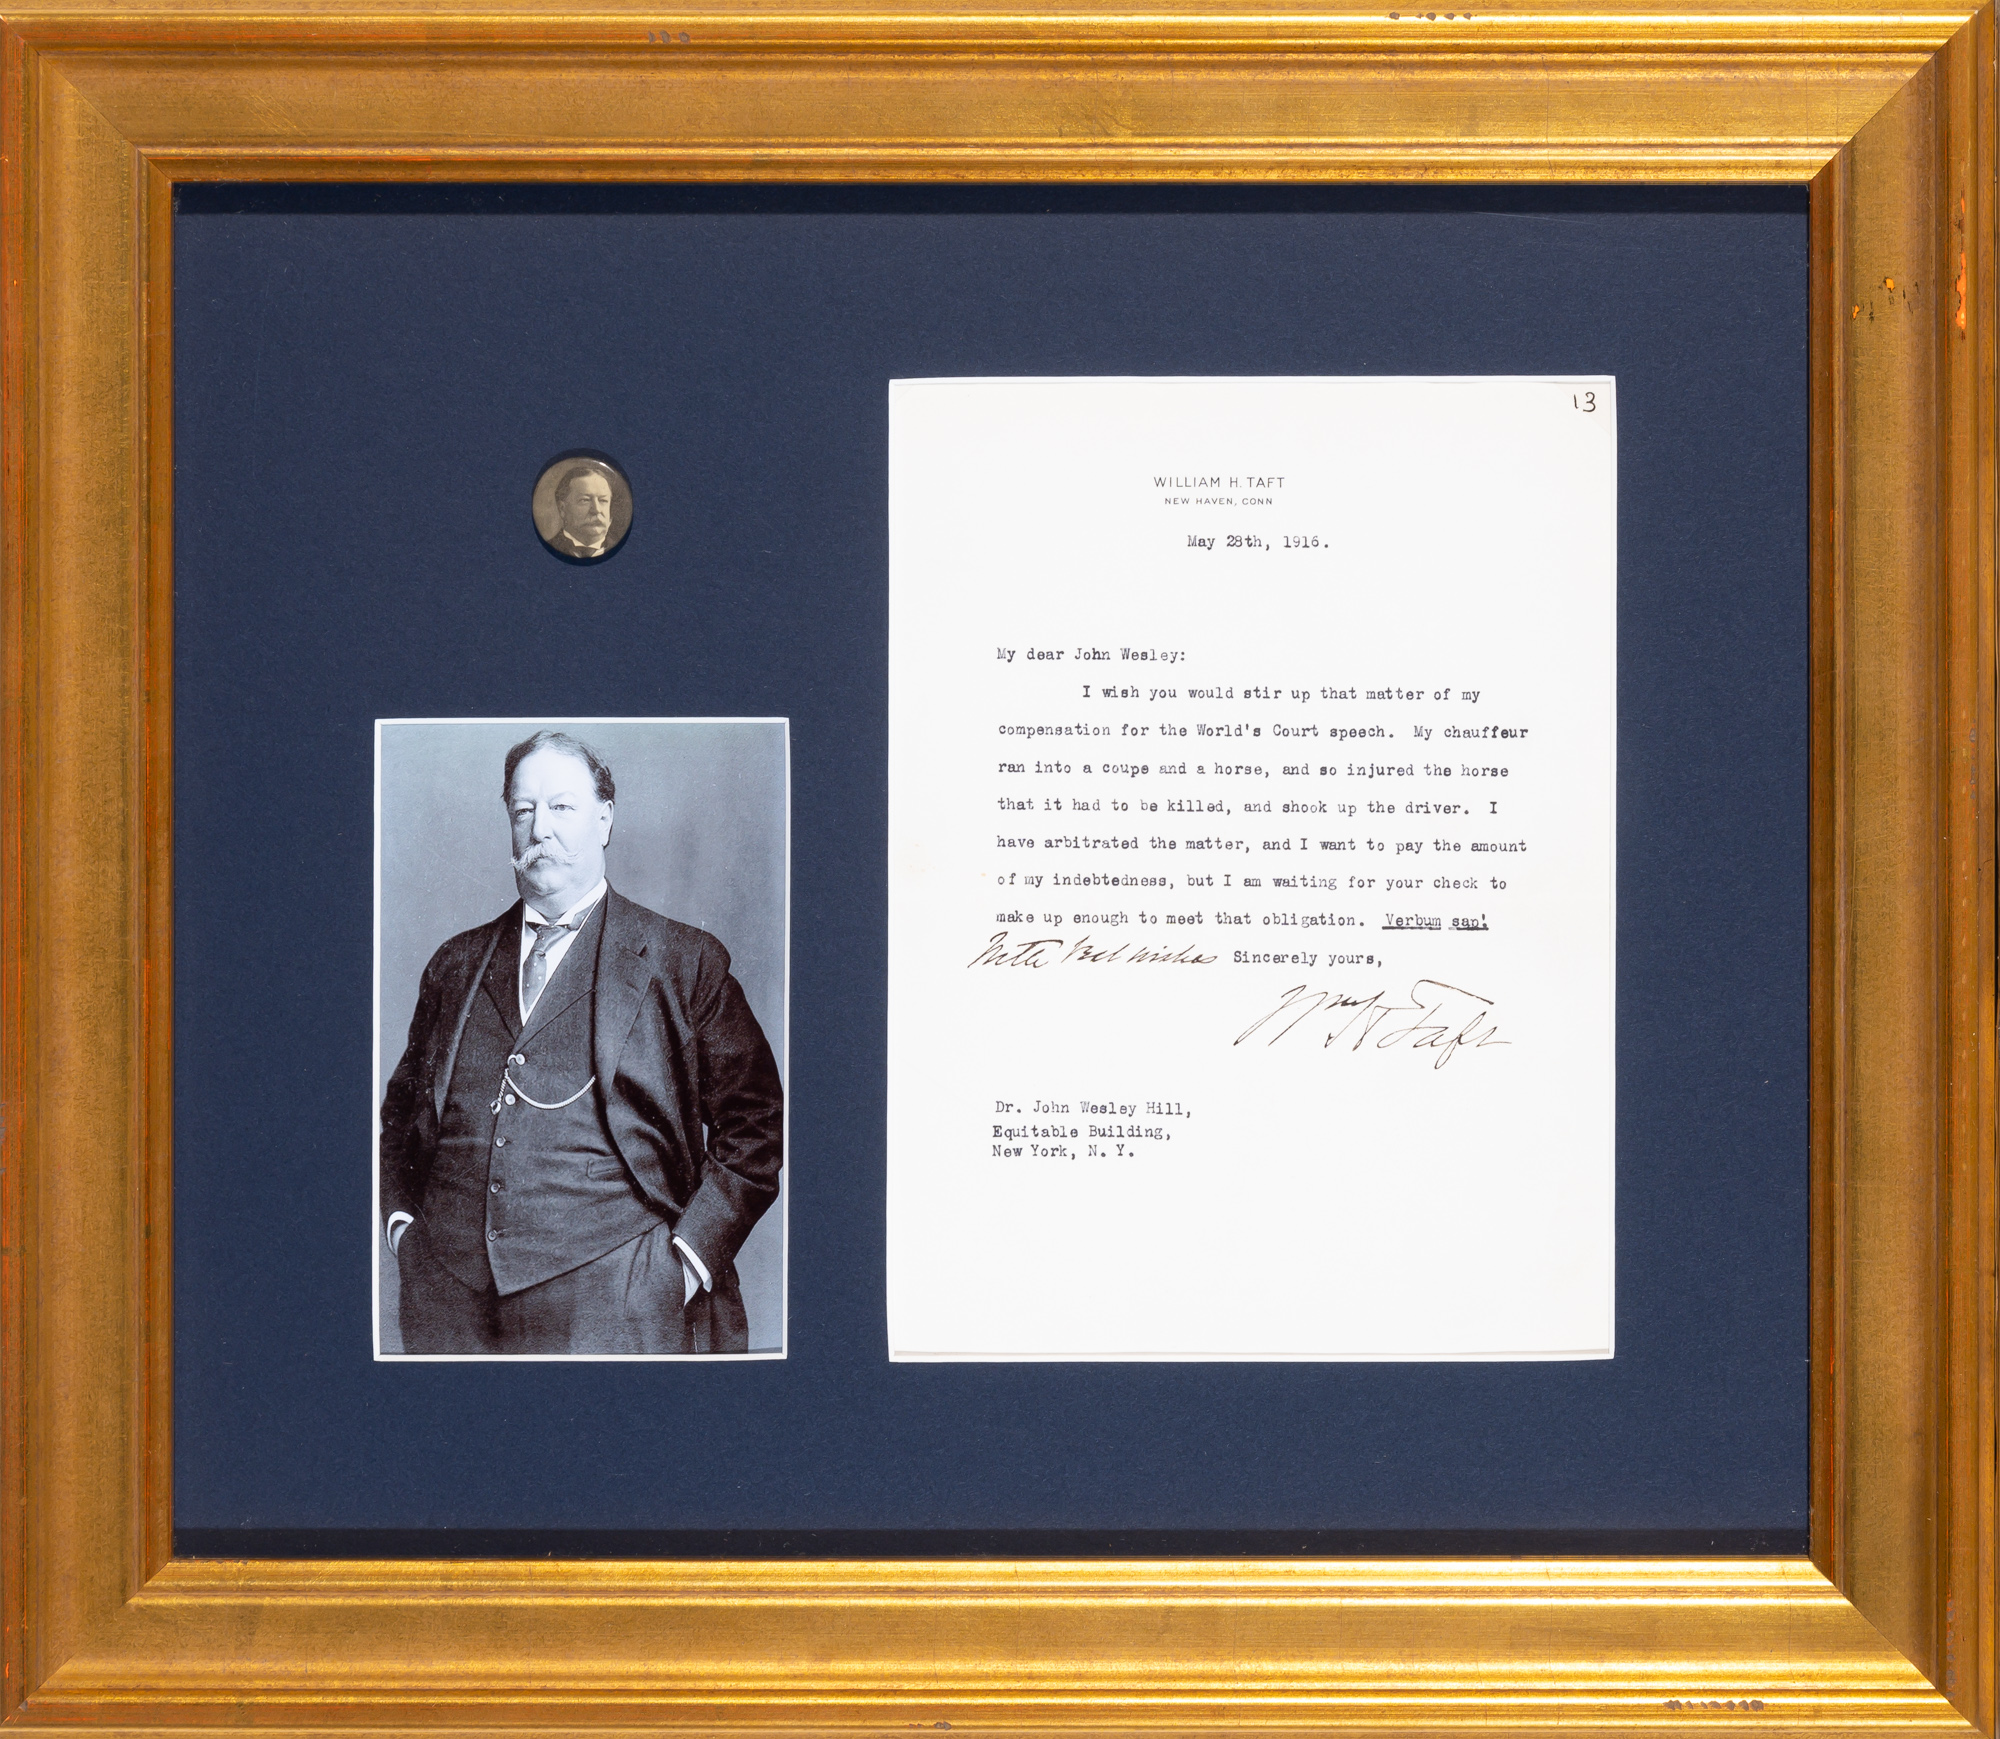 13
WILLIAM H. TAFT
NEW HAVEN, CONN
May 28th, 1916.
My dear John Wesley:
I wish you would stir up that matter of my
compensation for the World's Court speech. My chauffeur
ran into a coupe and a horse, and so injured the horse
that it had to be killed, and shook up the driver. I
have arbitrated the matter, and I want to pay the amount
of my indebtedness, but I am waiting for your check to
make up enough to meet that obligation. Verbum sap!
With best wishes Sincerely yours,
Wm H Taft
Dr. John Wesley Hill,
Equitable Building,
New York, N. Y.